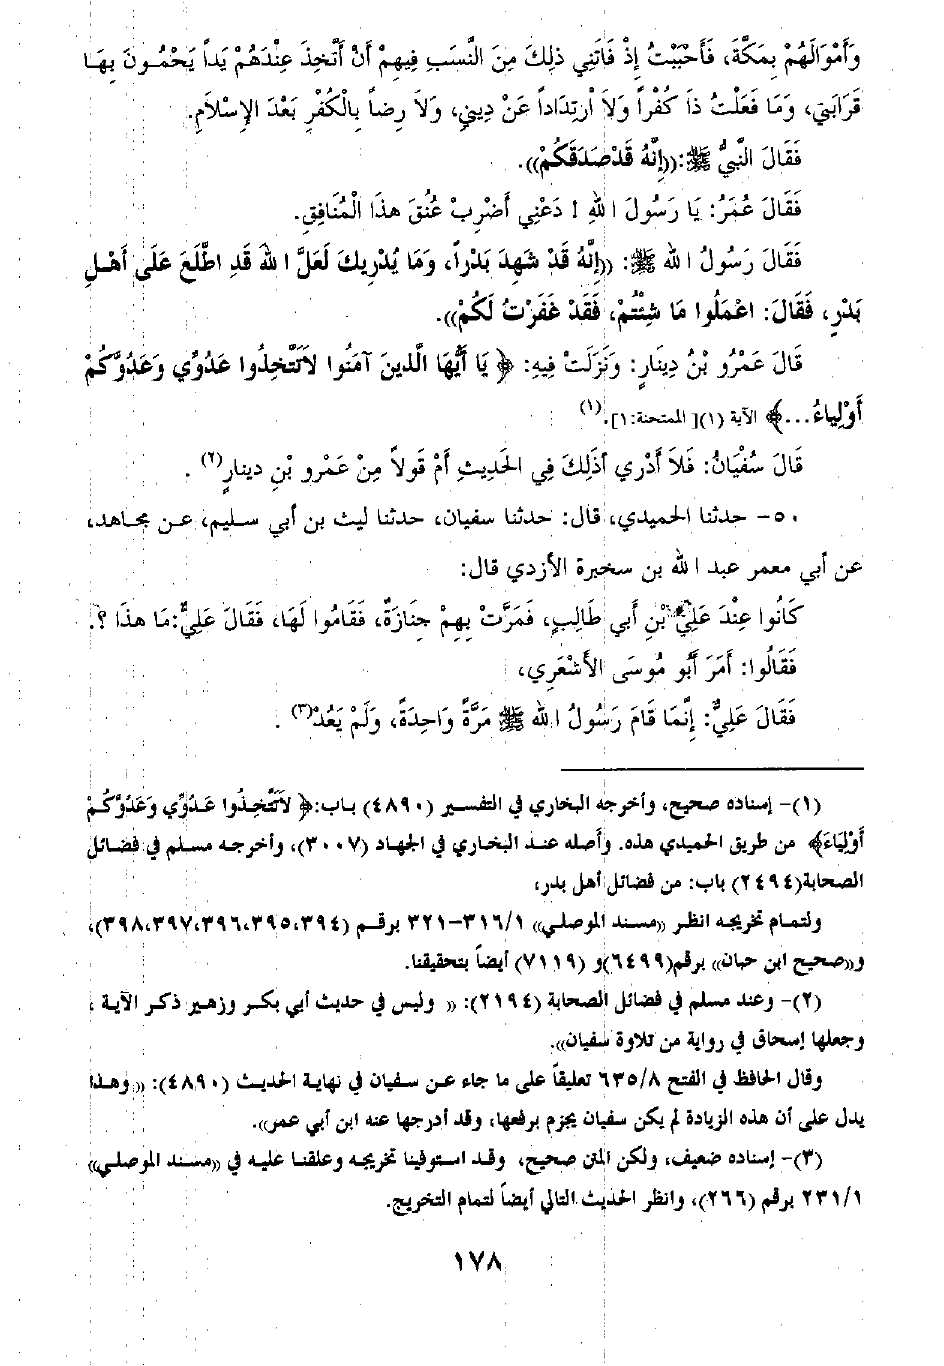 وَأَمْوَالَهُمْ بِمَكَّةَ، فَأَحْبَبْتُ إِذْ فَاتَنِي ذلِكَ مِنَ النَّسَبِ فِيهِمْ أَنْ أَتَّخِذَ عِنْدَهُمْ يَداً يَحْمُونَ بِهَا
قَرَابَتِي، وَمَا فَعَلْتُ ذَا كُفْراً وَلاَ ارْتِدَاداً عَنْ دِينِي، وَلاَ رِضاً بِالْكُفْرِ بَعْدَ الإِسْلاَمِ.
فَقَالَ النَّبِيُّ ﷺ:((إِنَّهُ قَدْصَدَقَكُمْ)).
فَقَالَ عُمَرُ: يَا رَسُولَ اللهِ ! دَعْنِي أَضْرِبْ عُنُقَ هذَا الْمُنَافِقِ.
فَقَالَ رَسُولُ الله ﷺ: ((إِنَّهُ قَدْ شَهِدَ بَدْراً، وَمَا يُدْرِيكَ لَعَلَّ اللهَ قَدِ اطَّلَعَ عَلَى أَهْلِ
بَدْرٍ، فَقَالَ: اعْمَلُوا مَا شِئْتُمْ، فَقَدْ غَفَرْتُ لَكُمْ)).
قَالَ عَمْرُو بْنُ دِينَارٍ: وَنَزَلَتْ فِيهِ: ﴿ يَا أَيُّهَا الَّذينَ آمَنُوا لاَتَتَّخِذُوا عَدُوِّي وَعَدُوَّكُمْ
أَوْلِيَاءُ...﴾ الآية (١)[ الممتحنة:١].(١)
قَالَ سُفْيَانُ: فَلاَ أَدْري أَذلِكَ فِي الحَديثِ أَمْ قَولاً مِنْ عَمْرِو بْنِ دينارٍ(٢) .
٥٠- حدثنا الحميدي، قال: حدثنا سفيان، حدثنا ليث بن أبي سليم، عن مجاهد،
عن أبي معمر عبد الله بن سخبرة الأزدي قال:
كَانُوا عِنْدَ عَلِيِّ بْنِ أَبي طَالِبٍ، فَمَرَّتْ بِهِمْ جِنَازَةٌ، فَقَامُوا لَهَا، فَقَالَ عَلِيٌّ:مَا هذَا ؟.
فَقَالُوا: أَمَرَ أَبُو مُوسَى الأَشْعَرِي،
فَقَالَ عَلِيٌّ: إِنَّمَا قَامَ رَسُولُ الله ﷺ مَرَّةً وَاحِدَةً، وَلَمْ يَعُدْ(٣) .
(١)- إسناده صحيح، وأخرجه البخاري في التفسير (٤٨٩٠) باب:﴿ لاَتَتَّخِذُوا عَدُوِّي وَعَدُوَّكُمْ
أَوْلِيَاءَ﴾ من طريق الحميدي هذه. وأصله عند البخاري في الجهاد (٣٠٠٧)، وأخرجه مسلم في فضائل
الصحابة(٢٤٩٤) باب: من فضائل أهل بدر،
ولتمام تخريجه انظر ((مسند الموصلي)) ٣١٦/١-٣٢١ برقم (٣٩٨،٣٩٧،٣٩٦،٣٩٥،٣٩٤)،
و((صحيح ابن حبان)) برقم(٦٤٩٩)و (٧١١٩) أيضاً بتحقيقنا.
(٢)- وعند مسلم في فضائل الصحابة (٢١٩٤): (( وليس في حديث أبي بكر وزهير ذكر الآية ،
وجعلها إسحاق في رواية من تلاوة سفيان)).
وقال الحافظ في الفتح ٦٣٥/٨ تعليقاً على ما جاء عن سفيان في نهاية الحديث (٤٨٩٠): ((وهذا
يدل على أن هذه الزيادة لم يكن سفيان يجزم برفعها، وقد أدرجها عنه ابن أبي عمر)).
(٣)- إسناده ضعيف، ولكن المتن صحيح، وقد استوفينا تخريجه وعلقنا عليه في ((مسند الموصلي))
٢٣١/١ برقم (٢٦٦)، وانظر الحديث التالي أيضاً لتمام التخريج.
١٧٨